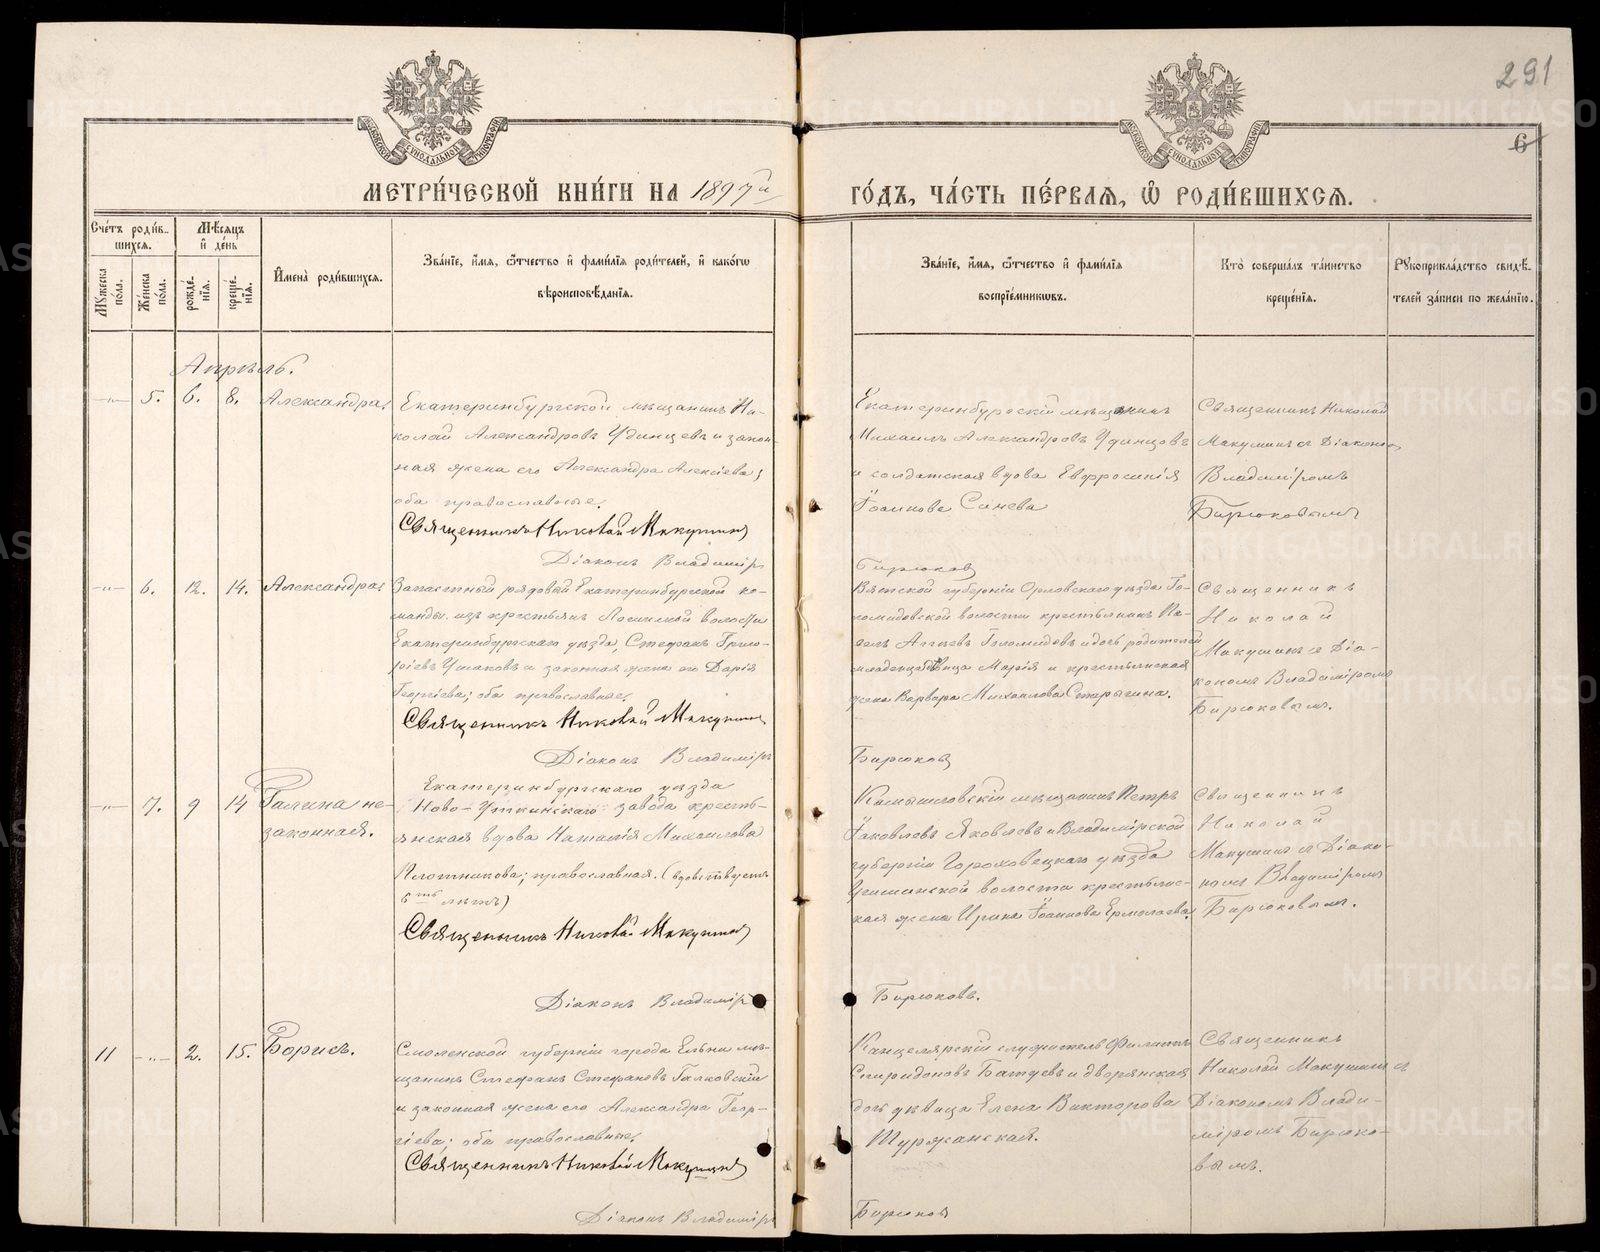 291
6
МОСКОВСКОЙ СѴНОДАЛЬНОЙ ТИПОГРАФІИ
МОСКОВСКОЙ СѴНОДАЛЬНОЙ ТИПОГРАФІИ
МЕТРИ́ЧЕСКОЙ КНИ́ГИ НА 1897й
ГО́ДЪ, ЧА́СТЬ ПЕ́РВАѦ, Ѽ РОДИ́ВШИХСѦ.
Сче́тъ роди́в-
шихсѧ.
Мѣ́сѧцъ
и҆ де́нь
Мꙋжеска
по́ла.
Же́нска
по́ла.
рожде́-
нїѧ.
креще́-
нїѧ.
И҆мена̀ роди́вшихсѧ.
Зва́нїе, и҆́мѧ, ѻ҆́тчество и҆ фами́лїѧ роди́телей, и҆ како́гѡ
вѣроисповѣ́данїѧ.
Зва́нїе, и҆́мѧ, ѻ҆́тчество и҆ фами́лїѧ
воспрїе́мникѡвъ.
Кто̀ соверша́лъ та́инство
креще́нїѧ.
Рꙋкоприкла́дство свидѣ́-
телей за́писи по жела́нїю.
Апрѣль.
—„— 5. 6. 8. Александра.
Екатеринбургской мѣщанинъ Ни-
колай Александровъ Удинцевъ и закон-
ная жена его Александра Алексіева;
оба православные.
Священникъ Николай Макушинъ
Діаконъ Владиміръ
Екатеринбургскій мѣщанинъ
Михаилъ Александровъ Удинцовъ
и солдатская вдова Евфросинія
Іоаннова Синева
Бирюковъ
Священникъ Николай
Макушинъ съ Діакономъ
Владиміромъ
Бирюковымъ
—„— 6. 12. 14. Александра.
Запасный рядовой Екатеринбургской ко-
манды изъ крестьянъ волости
Екатеринбургскаго уѣзда Стефанъ Григо-
ріевъ Ушаковъ и законная жена его Дарія
Георгіева; оба православные.
Священникъ Николай Макушинъ
Діаконъ Владиміръ
Вятской губерніи Орловскаго уѣзда Го-
ломидовской волости крестьянинъ Па-
велъ Голомидовъ и дочь родителей
младенца дѣвица Марія и крестьянская
жена Варвара Михаилова Старыгина.
Бирюковъ
Священникъ
Николай
Макушинъ съ Діа-
кономъ Владиміромъ
Бирюковымъ.
—„— 7. 9 14 Галина не-
законная.
Екатеринбургскаго уѣзда
Ново-Уткинскаго завода кресть-
янская вдова Наталія Михаилова
Плотникова; православная. (вдовствуетъ
6ть лѣтъ)
Священникъ Николай Макушинъ
Діаконъ Владиміръ
Камышловскій мѣщанинъ Петръ
Іаковлевъ Яковлевъ и Владимірской
губерніи Гороховецкаго уѣзда
волости крестьянс-
кая жена Ирина Іоаннова Ермолаева.
Бирюковъ.
Священникъ
Николай
Макушинъ съ Діако-
номъ Владиміромъ
Бирюковымъ.
11 —„— 2. 15. Борисъ.
Смоленской губерніи города Ельни мѣ-
щанинъ Стефанъ Стефановъ Галковскій
и законная жена его Александра Геор-
гіева; оба православные.
Священникъ Николай Макушинъ
Діаконъ Владиміръ
Канцелярскій служитель Филиппъ
Спиридоновъ Батуевъ и дворянская
дочь дѣвица Елена Викторова
Туржанская.
Бирюковъ
Священникъ
Николай Макушинъ съ
Діакономъ Влади-
міромъ Бирюко-
вымъ.
METRIKI.GASO-URAL.RU